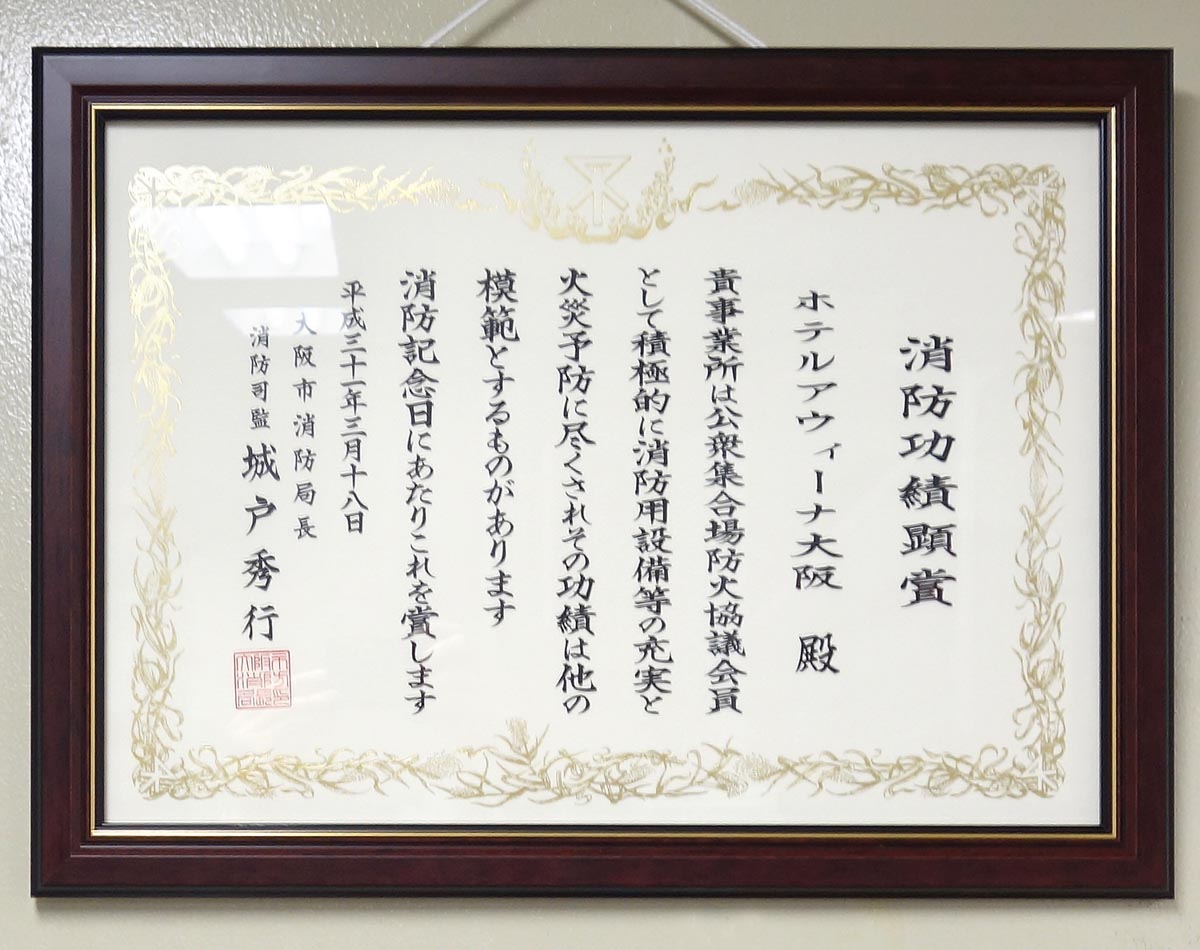 消防功績顕賞
ホテルアウィーナ大阪 殿
貴事業所は公衆集合場防火協議会員
として積極的に消防用設備等の充実と
火災予防に尽くされその功績は他の
模範とするものがあります
消防記念日にあたりこれを賞します
平成三十一年三月十八日
大阪市消防局長
消防司監 城戸秀行